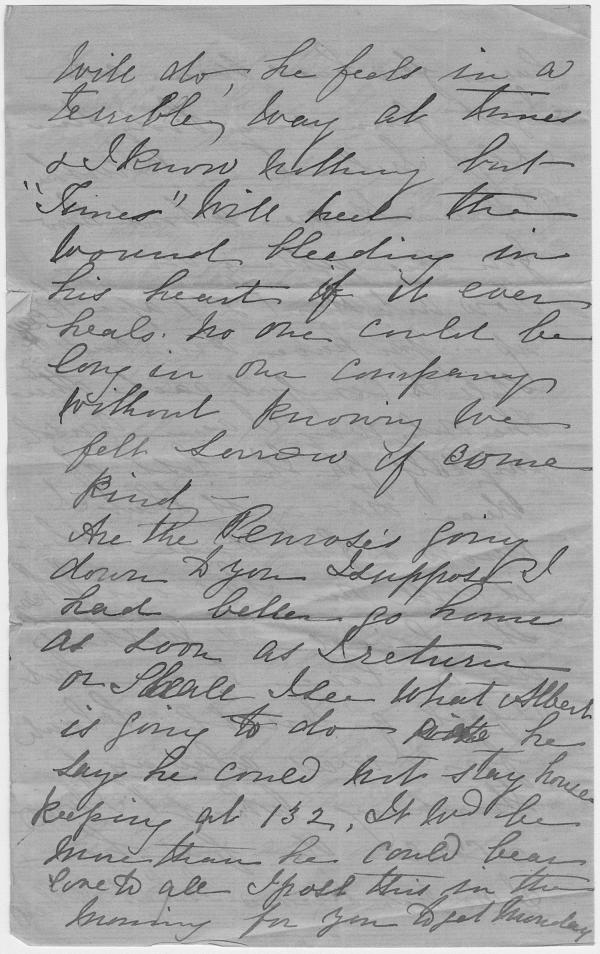 will do, he feels in a
terrible way at times
& I know nothing but
"Times" will heel the
wound bleeding in
his heart if it ever
heals. No one could be
long in our company
without knowing we
felt sorrow of some
kind –
Are the Penrose's going
down to you I suppose I
had better go home
as soon as I return
or Shall I see what Albert
is going to do he
says he could not stay house
keeping at 132, It wd be
more than he could bear
love to all I post this in the
morning for you to get Monday